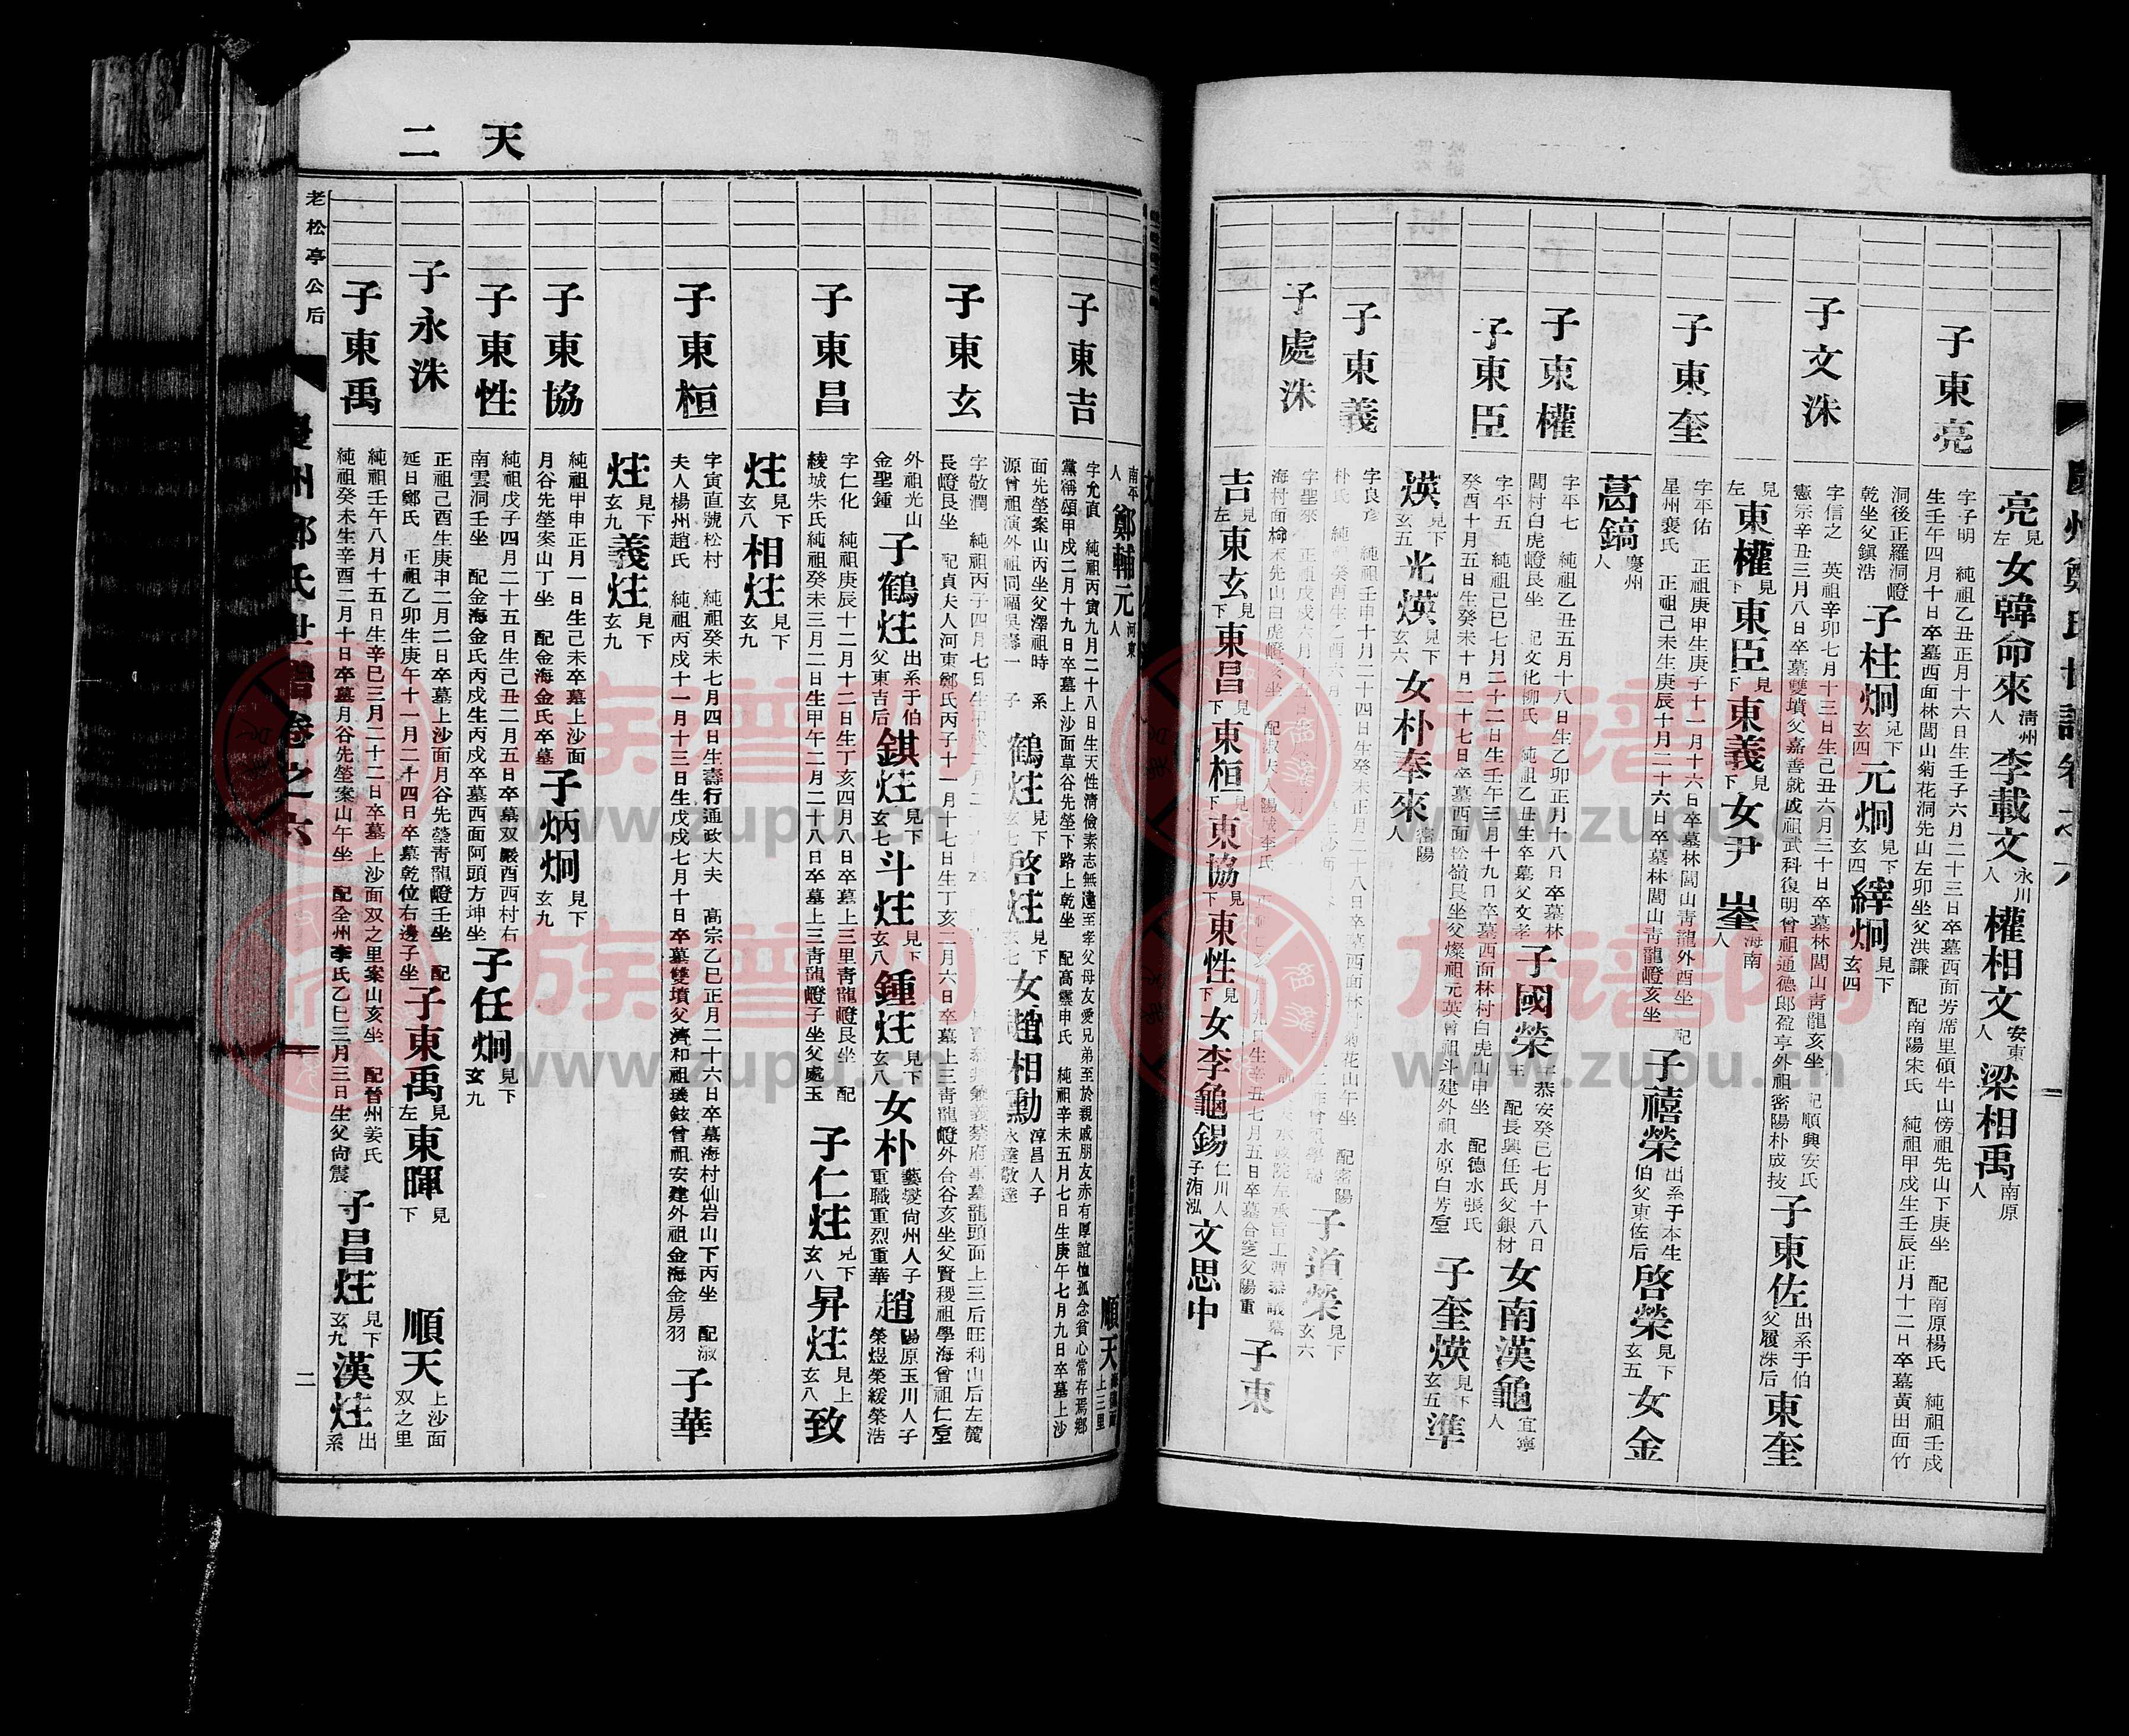 亮見左女韓命來清州人李載文永川人權相文安東人梁相禹南原人
子東亮
字子明 純祖乙丑正月十六日生壬子六月二十三日卒墓西面芳席里傾牛山傍祖先山下庚坐 配南原楊氏 純祖壬戌
生壬午四月十日卒墓西面林閭山菊花洞先山左卯坐父洪謙 配南陽宋氏 純祖甲戌生壬辰正月十二日卒墓黃田面竹
洞後正羅洞嶝乾坐父鎭浩子柱炯見下玄四元炯見下玄四繹炯見下玄四
子文洙
字信之 英祖辛卯七月十三日生己丑六月三十日卒墓林閭山靑龍亥坐 配順興安氏
憲宗辛丑三月八日卒墓雙墳父嘉善就成祖武科復明曾祖通德郎盈亨外祖密陽朴成技
子東佐出系于伯父履洙后東奎
見左東權見下東臣見下東義見下女尹峑海南人
子東奎
字平佑 正祖庚申生庚子十一月十六日卒墓林閭山靑龍外酉坐 配
星州裵氏 正祖己未生庚辰十月二十六日卒墓林閭山靑龍嶝亥坐
子禧榮出系于本生伯父東佐后啓榮見下玄五女金
葛鎬慶州人
子東權
字平七 純祖乙丑五月十八日生乙卯正月十八日卒墓林
閭村白虎嶝艮坐 配文化柳氏 純祖乙丑生卒墓父文孝
子國榮 恭安癸己七月十八日生 配長興任氏父銀材女南漢龜宜寧人
子東臣
字平五 純祖己巳七月二十二日生壬午三月十九日卒墓西面林村白虎山申坐 配德水張氏
癸酉十月五日生癸未十月二十七日卒墓西面松嶺艮坐父燦祖元英曾祖斗建外祖水原白芳㝎
子奎煐見下玄五準
煐見下玄五光煐見下玄六女朴奉來密陽人
子東義
字良彦 純祖壬申十月二十四日生癸未正月二十八日卒墓西面林 菊花山午坐 配密陽
朴氏 純祖癸酉生乙酉六月
子道榮見下玄六
子處洙
字聖來 正祖戊戌六月十五日
海村面柳木先山白虎嶝亥坐 配淑夫人陽城李氏
子東
吉見左東玄見下東昌見下東桓見下東協見下東性見下女李龜錫仁川人子洧泓文思中
天二
南平人鄭輔元河東人
順天
上三里
子東吉
字允直 純祖丙寅九月二十八日生天性淸儉素志無違至孝父母友愛兄弟至於親戚朋友赤有厚誼恤孤念貧心常存焉鄕
黨稱頌甲戌二月十九日卒墓上沙面草谷先塋下路上乾坐 配高靈申氏 純祖辛未五月七日生庚午七月九日卒墓上沙
面先塋案山丙坐父澤祖時 系
源曾祖演外祖同福吳壽一 子
鶴炷見下玄七啓炷見下玄七女趙相勳淳昌人子永達敬達
子東玄
字敬潤 純祖丙子四月七日生
艮嶝艮坐 配貞夫人河東鄭氏丙子十一月十七日生丁亥二月六日卒墓上三靑龍嶝外台谷亥坐父賢稷祖學海曾祖仁㝎
外祖光山金聖鍾子鶴炷出系于伯父東吉后錤炷見下玄七斗炷見下玄八鍾炷見下玄八女朴藝燮尙州人子重職重烈重華趙陽原玉川人子榮煜榮緩榮浩
子東昌
字仁化 純祖庚辰十二月十二日生丁亥四月八日卒墓上三里靑龍嶝艮坐 配
綾城朱氏純祖癸未三月二日生甲午二月二十八日卒墓上三靑龍嶝子坐父處玉
子仁炷見下玄八昇炷見上玄八致
炷見下玄八相炷見下玄八
子東桓
字寅直號松村 純祖癸未七月四日生壽行通政大夫 高宗乙巳正月二十六日卒墓海村仙岩山下丙坐 配淑
夫人楊州趙氏 純祖丙戌十一月十三日生戊戌七月十日卒墓雙墳父濟和祖璣鉉曾祖安建外祖金海金房羽
子華
炷見下玄九義炷見下玄九
子東協
純祖甲申正月一日生己未卒墓上沙面
月谷先塋案山丁坐 配金海金氏卒墓
子炳炯見下玄九
子東性
純祖戊子四月二十五日生己丑二月五日卒墓双巖酉西村右
南雲洞壬坐 配金海金氏丙戌生丙戌卒墓西面阿頭方坤坐
子任炯見下玄九
子永洙
正祖己酉生庚申二月二日卒墓上沙面月谷先瑩靑龍嶝壬坐 配
延日鄭氏 正祖乙卯生庚午十一月二十四日卒墓乾位右邊子坐
子東禹見左東暉見下 順天上沙面双之里
子東禹
純祖壬午八月十五日生辛巳三月二十二日卒墓上沙面双之里案山亥坐 配晉州姜氏
純祖癸未生辛酉二月十日卒墓月谷先塋案山午坐 配全州李氏乙巳三月三日生父尙震
子昌炷見下玄九漢炷出系
老松亭公后
慶州鄭氏世譜卷之六
二